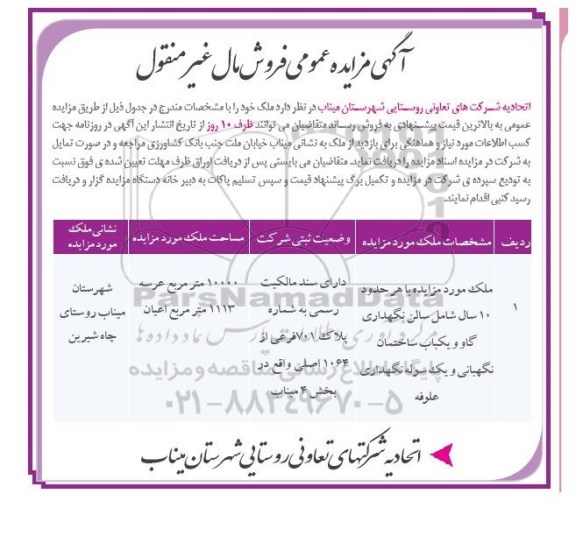 آگهی مزایده عمومی فروش مال غیر منقول
اتحادیه شرکت های تعاونی روستایی شهرستان میناب در نظر دارد ملک خود را با مشخصات مندرج در جدول ذیل از طریق مزایده
عمومی به بالاترین قیمت پیشنهادی به فروش رساند متقاضیان می توانند ظرف ۱۰ روز از تاریخ انتشار این آگهی در روزنامه جهت
کسب اطلاعات مورد نیاز و هماهنگی برای بازدید از ملک به نشانی میناب خیابان ملت جنب بانک کشاورزی مراجعه و در صورت تمایل
به شرکت در مزایده اسناد مزایده را دریافت نماید. متقاضیان می بایستی پس از دریافت اوراق ظرف مهلت تعیین شده ی فوق نسبت
به تودیع سپرده ی شرکت در مزایده و تکمیل برگ پیشنهاد قیمت و سپس تسلیم پاکات به دبیر خانه دستگاه مزایده گزار و دریافت
رسید کتبی اقدام نمایند.
ردیف مشخصات ملک مورد مزایده وضعیت ثبتی شرکت مساحت ملک مورد مزایده نشانی ملک مورد مزایده
۱
ملک مورد مزایده با هر حدود
۱۰ سال شامل سالن نگهداری
گاو و یکباب ساختمان
نگهبانی و یک سوله نگهداری
علوفه
دارای سند مالکیت
رسمی به شماره
پلاک ۷۰۱ فرعی از
۱۰۶۴ اصلی واقع در
بخش ۴ میناب
۱۰۰۰۰ متر مربع عرصه
۱۱۱۳ متر مربع اعیان
شهرستان
میناب روستای
چاه شیرین
ParsNamadData
۰۲۱-۸۸۳۴۹۶۷۰-۵
اتحادیه شرکتهای تعاونی روستایی شهرستان میناب